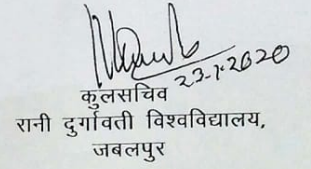 23-1-2020
कुलसचिव
रानी दुर्गावती विश्वविद्यालय,
जबलपुर